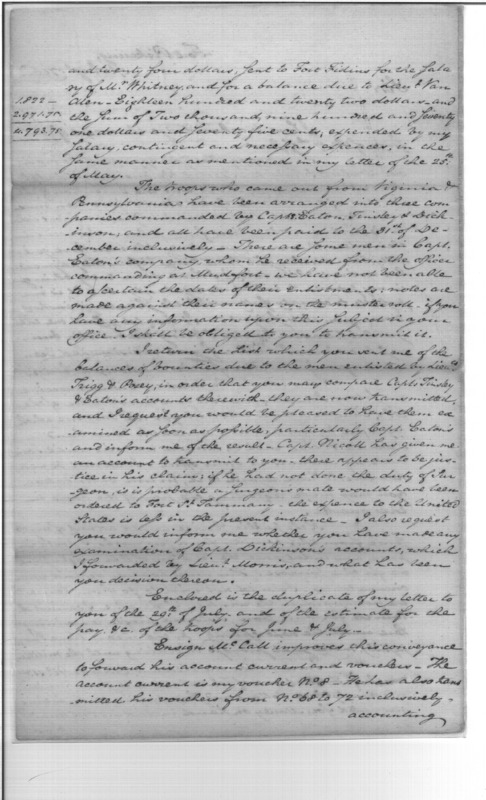 and twenty four dollars, sent to Fort Fidius for the Sala-
ry of Mr. Whitney and for a balance due to Lieut. Van
Alen - Eighteen hundred and twenty two dollars, and
1.822 -
2.971.75
4.793.75
the Sum of Two thousand, nine hundred and Seventy
one dollars and Seventy five cents, expended by my
Salary, contingent and necessary expences, in the
same manner as mentioned in my letter of the 25th
of May.
The troops who came out from Virginia &
Pennsylvania have been arranged into three com-
panies commanded by Capts. Eaton, Tinsley & Dick-
inson, and all have been paid to the 31st of De-
cember inclusively - There are some men in Capt.
Eaton's company, whom he received from the officer
commanding at Mudfort - we have not been able
to ascertain the dates of their enlistments; notes are
made against their names in the muster roll - if you
have any information upon this Subject in your
office I shall be obliged to you to transmit it.
I return the list which you sent me of the
balances of bounties due to the men enlisted by Lieuts.
Trigg & Posey, in order that you may compare Capts. Tinsley
& Eaton's accounts therewith - they are now transmitted,
and I request you would be pleased to have them ex-
amined as soon as possible, particularly Capt. Eaton's
and inform me of the result - Capt. Nicoll has given me
an account to transmit to you - there appears to be jus-
tice in his claim; if he had not done the duty of Sur-
geon, is is probable a Surgeons mate would have been
ordered to Fort St. Tammany - the expence to the United
States is less in the present instance - I also request
you would inform me whether you have made any
examination of Capt. Dickinson's accounts, which
I forwarded by Lieut. Morris, and what has been
you decision thereon.
Enclosed is the duplicate of my letter to
you of the 29th of July, and of the estimate for the
pay, &c. of the troops for June & July -
Ensign McCall improves this conveyance
to forward his account current and vouchers - The
account current is my voucher No. 8 - He has also trans
mitted his vouchers from No. 68 to 72 inclusively -
accounting